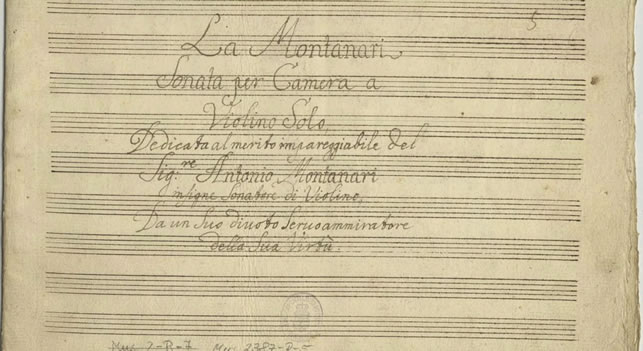 5
La Montanari
Sonata per Camera a
Violino Solo,
Dedicata al merito impareggiabile del
Sig:re Antonio Montanari
insigne Sonatore di Violino,
Da un Suo divoto Servo ammiratore
della Sua Virtù.
Mus. 2387-R-5